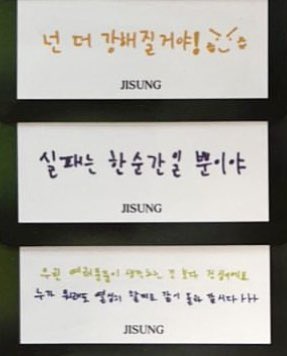 넌 더 강해질거야!
JISUNG
실패는 한순간일 뿐이야
JISUNG
우린 여러분들이 생각하는 것 보다 강해요
누가 뭐래도 열심히 같이 갑시다 ㅏㅏㅏ
JISUNG